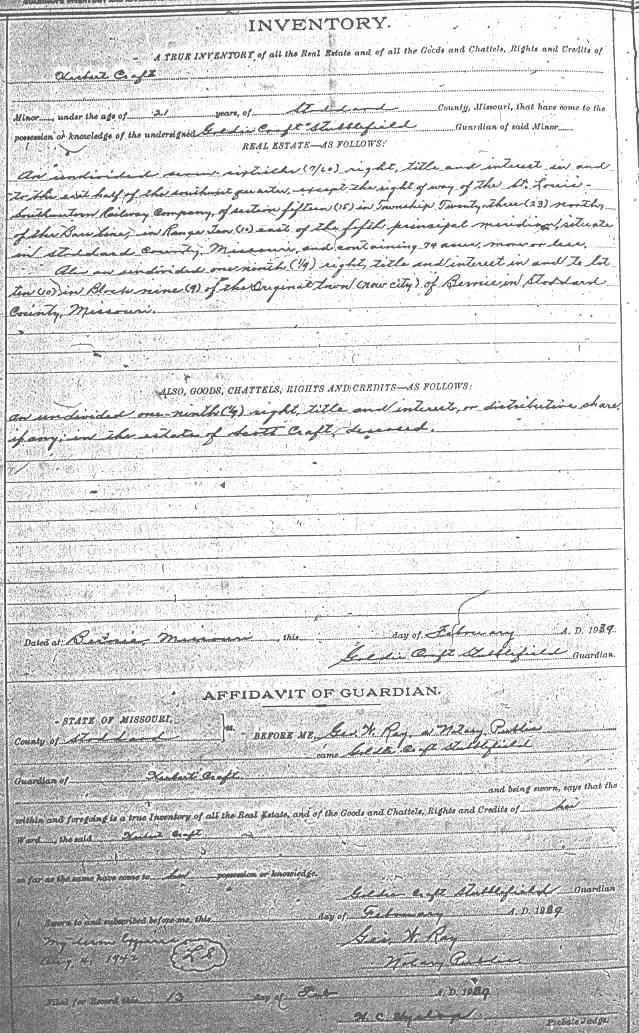 INVENTORY.
A TRUE INVENTORY of all the Real Estate and of all the Goods and Chattels, Rights and Credits of
Herbert Craft
Minor, under the age of 21 years, of Stoddard County, Missouri, that have come to the
possession or knowledge of the undersigned Goldie Craft Stubblefield Guardian of said Minor
REAL ESTATE—AS FOLLOWS:
An undivided seven sixtieths (7/60) right, title and interest in and
to the east half of the southwest quarter, except the right of way of the St. Louis-
Southwestern Railway Company, of section fifteen (15) in Township Twenty-three (23) north
of the Base Line, in Range Ten (10) east of the fifth principal meridian, situate
in Stoddard County, Missouri, and containing 74 acres, more or less.
Also an undivided one-ninth (1/9) right, title and interest in and to lot
ten (10) in Block nine (9) of the Original town (now city) of Bernie, in Stoddard
County, Missouri.
ALSO, GOODS, CHATTELS, RIGHTS AND CREDITS—AS FOLLOWS:
An undivided one-ninth (1/9) right, title and interest, or distributive share,
if any, in the estate of Scott Craft, deceased.
Dated at Bernie, Missouri, this day of February A. D. 1939
Goldie Craft Stubblefield Guardian.
AFFIDAVIT OF GUARDIAN.
STATE OF MISSOURI,
County of Stoddard ss. BEFORE ME, Geo. W. Ray, a Notary Public
came Goldie Craft Stubblefield
Guardian of Herbert Craft
and being sworn, says that the
within and foregoing is a true Inventory of all the Real Estate, and of the Goods and Chattels, Rights and Credits of her
Ward, the said Herbert Craft
so far as the same have come to her possession or knowledge.
Goldie Craft Stubblefield Guardian
Sworn to and subscribed before me, this day of February A. D. 1939
My term Expires Geo. W. Ray
Aug 4, 1942 LS Notary Public
Filed for Record this 13 day of Feb A. D. 1939
H. C. Probate Judge.